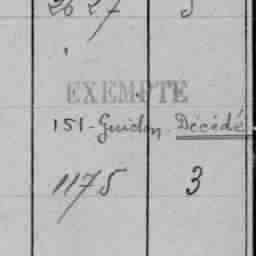 2627 3
EXEMPTE
151-Guidon Décédé
1175 3